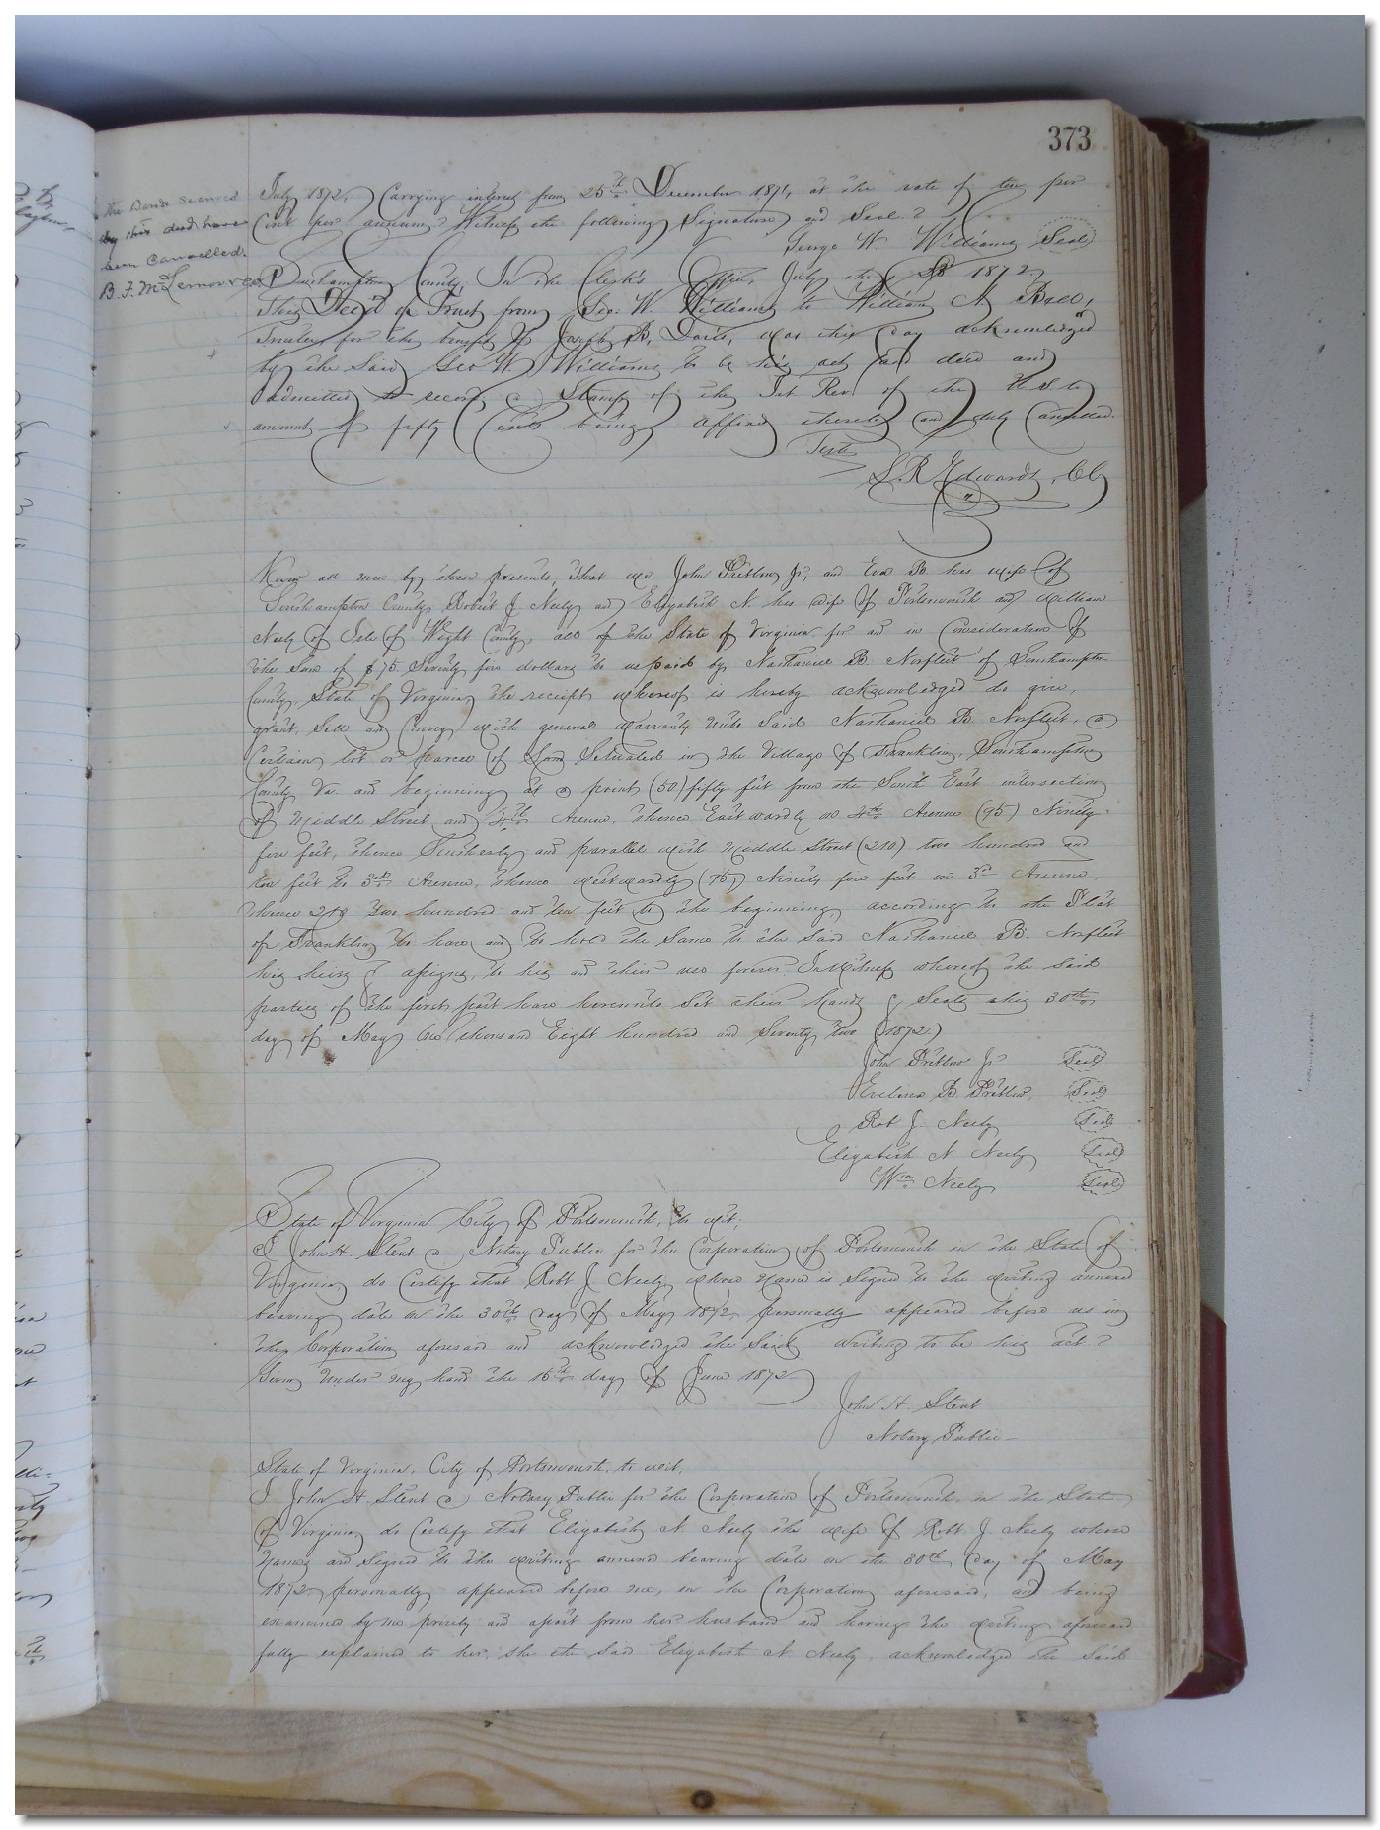 373
the bonds secured
by this deed have
been cancelled.
B. F. McLemore
July 1872, Carrying interest from 25th December 1871, at the rate of ten per
Cent per annum. Witness the following Signature and Seal.
George W. Williams Seal
Southampton County, In the Clerk's Office, July the 1872.
This Deed of Trust from Geo. W. Williams to William Bell,
Trustee for the benefit of Joseph B. Davis, was this day acknowledged
by the Said Geo W. Williams to be his act and deed and
admitted to record, a Stamp of the Int Rev. of the U.S. to
amount of fifty Cents being affixed thereto and duly Cancelled.
Teste
L. R. Edwards, Clk
Know all men by these presents, that we John Pretlow Jr, and Eva B. his wife of
Southampton County, Robert J. Neely and Elizabeth N. his wife of Portsmouth and William
Neely of Isle of Wight County, all of the State of Virginia for and in Consideration of
the Sum of $75 Seventy five dollars to us paid by Nathaniel B. Norfleet of Southampton
County, State of Virginia, the receipt whereof is hereby acknowledged do give,
grant, Sell and Convey with general warranty unto Said Nathaniel B. Norfleet, a
Certain lot or parcel of Land Situated in the Village of Franklin, Southampton
County Va. and beginning at a point (50) fifty feet from the South East intersection
of Middle Street and 4th Avenue, thence Eastwardly on 4th Avenue (95) Ninety
five feet, thence Southerly and parallel with Middle Street (210) two hundred and
ten feet to 3rd Avenue, thence westwardly Ninety five feet on 3rd Avenue,
thence 210 two hundred and ten feet to the beginning, according to the Plat
of Franklin, to have and to hold the Same to the Said Nathaniel B. Norfleet
his heirs & assigns, to his and their use forever. In Witness whereof the said
parties of the first part have hereunto Set their hands & Seals this 30th
day of May One thousand Eight hundred and Seventy two (1872.)
John Pretlow Jr Seal
Evelina B. Pretlow, Seal
Robt J. Neely Seal
Elizabeth N Neely Seal
Wm Neely Seal
State of Virginia City of Portsmouth, to wit;
I John H. Stent a Notary Public for the Corporation of Portsmouth in the State of
Virginia do Certify that Robt J. Neely whose Name is Signed to the writing annexed
bearing date on the 30th day of May 1872, personally appeared before us in
the Corporation aforesaid and acknowledged the Said writing to be his act.
Given under my hand the 15th day of June 1872
John H. Stent
Notary Public
State of Virginia, City of Portsmouth, to wit,
I John H. Stent a Notary Public for the Corporation of Portsmouth, in the State
of Virginia, do Certify that Elizabeth N. Neely the wife of Robt. J. Neely whose
Names are Signed to the writing annexed bearing date on the 30th day of May
1872, personally appeared before me, in the Corporation aforesaid, and being
examined by me privily and apart from her husband and having the writing aforesaid
fully explained to her, She the Said Elizabeth N. Neely, acknowledged the Said